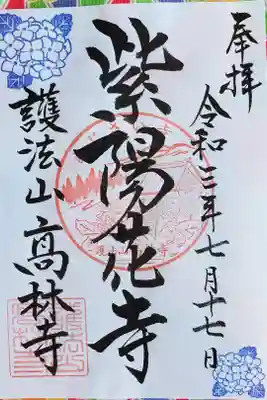 奉拝
令和三年七月十七日
紫陽花寺
護法山髙林寺